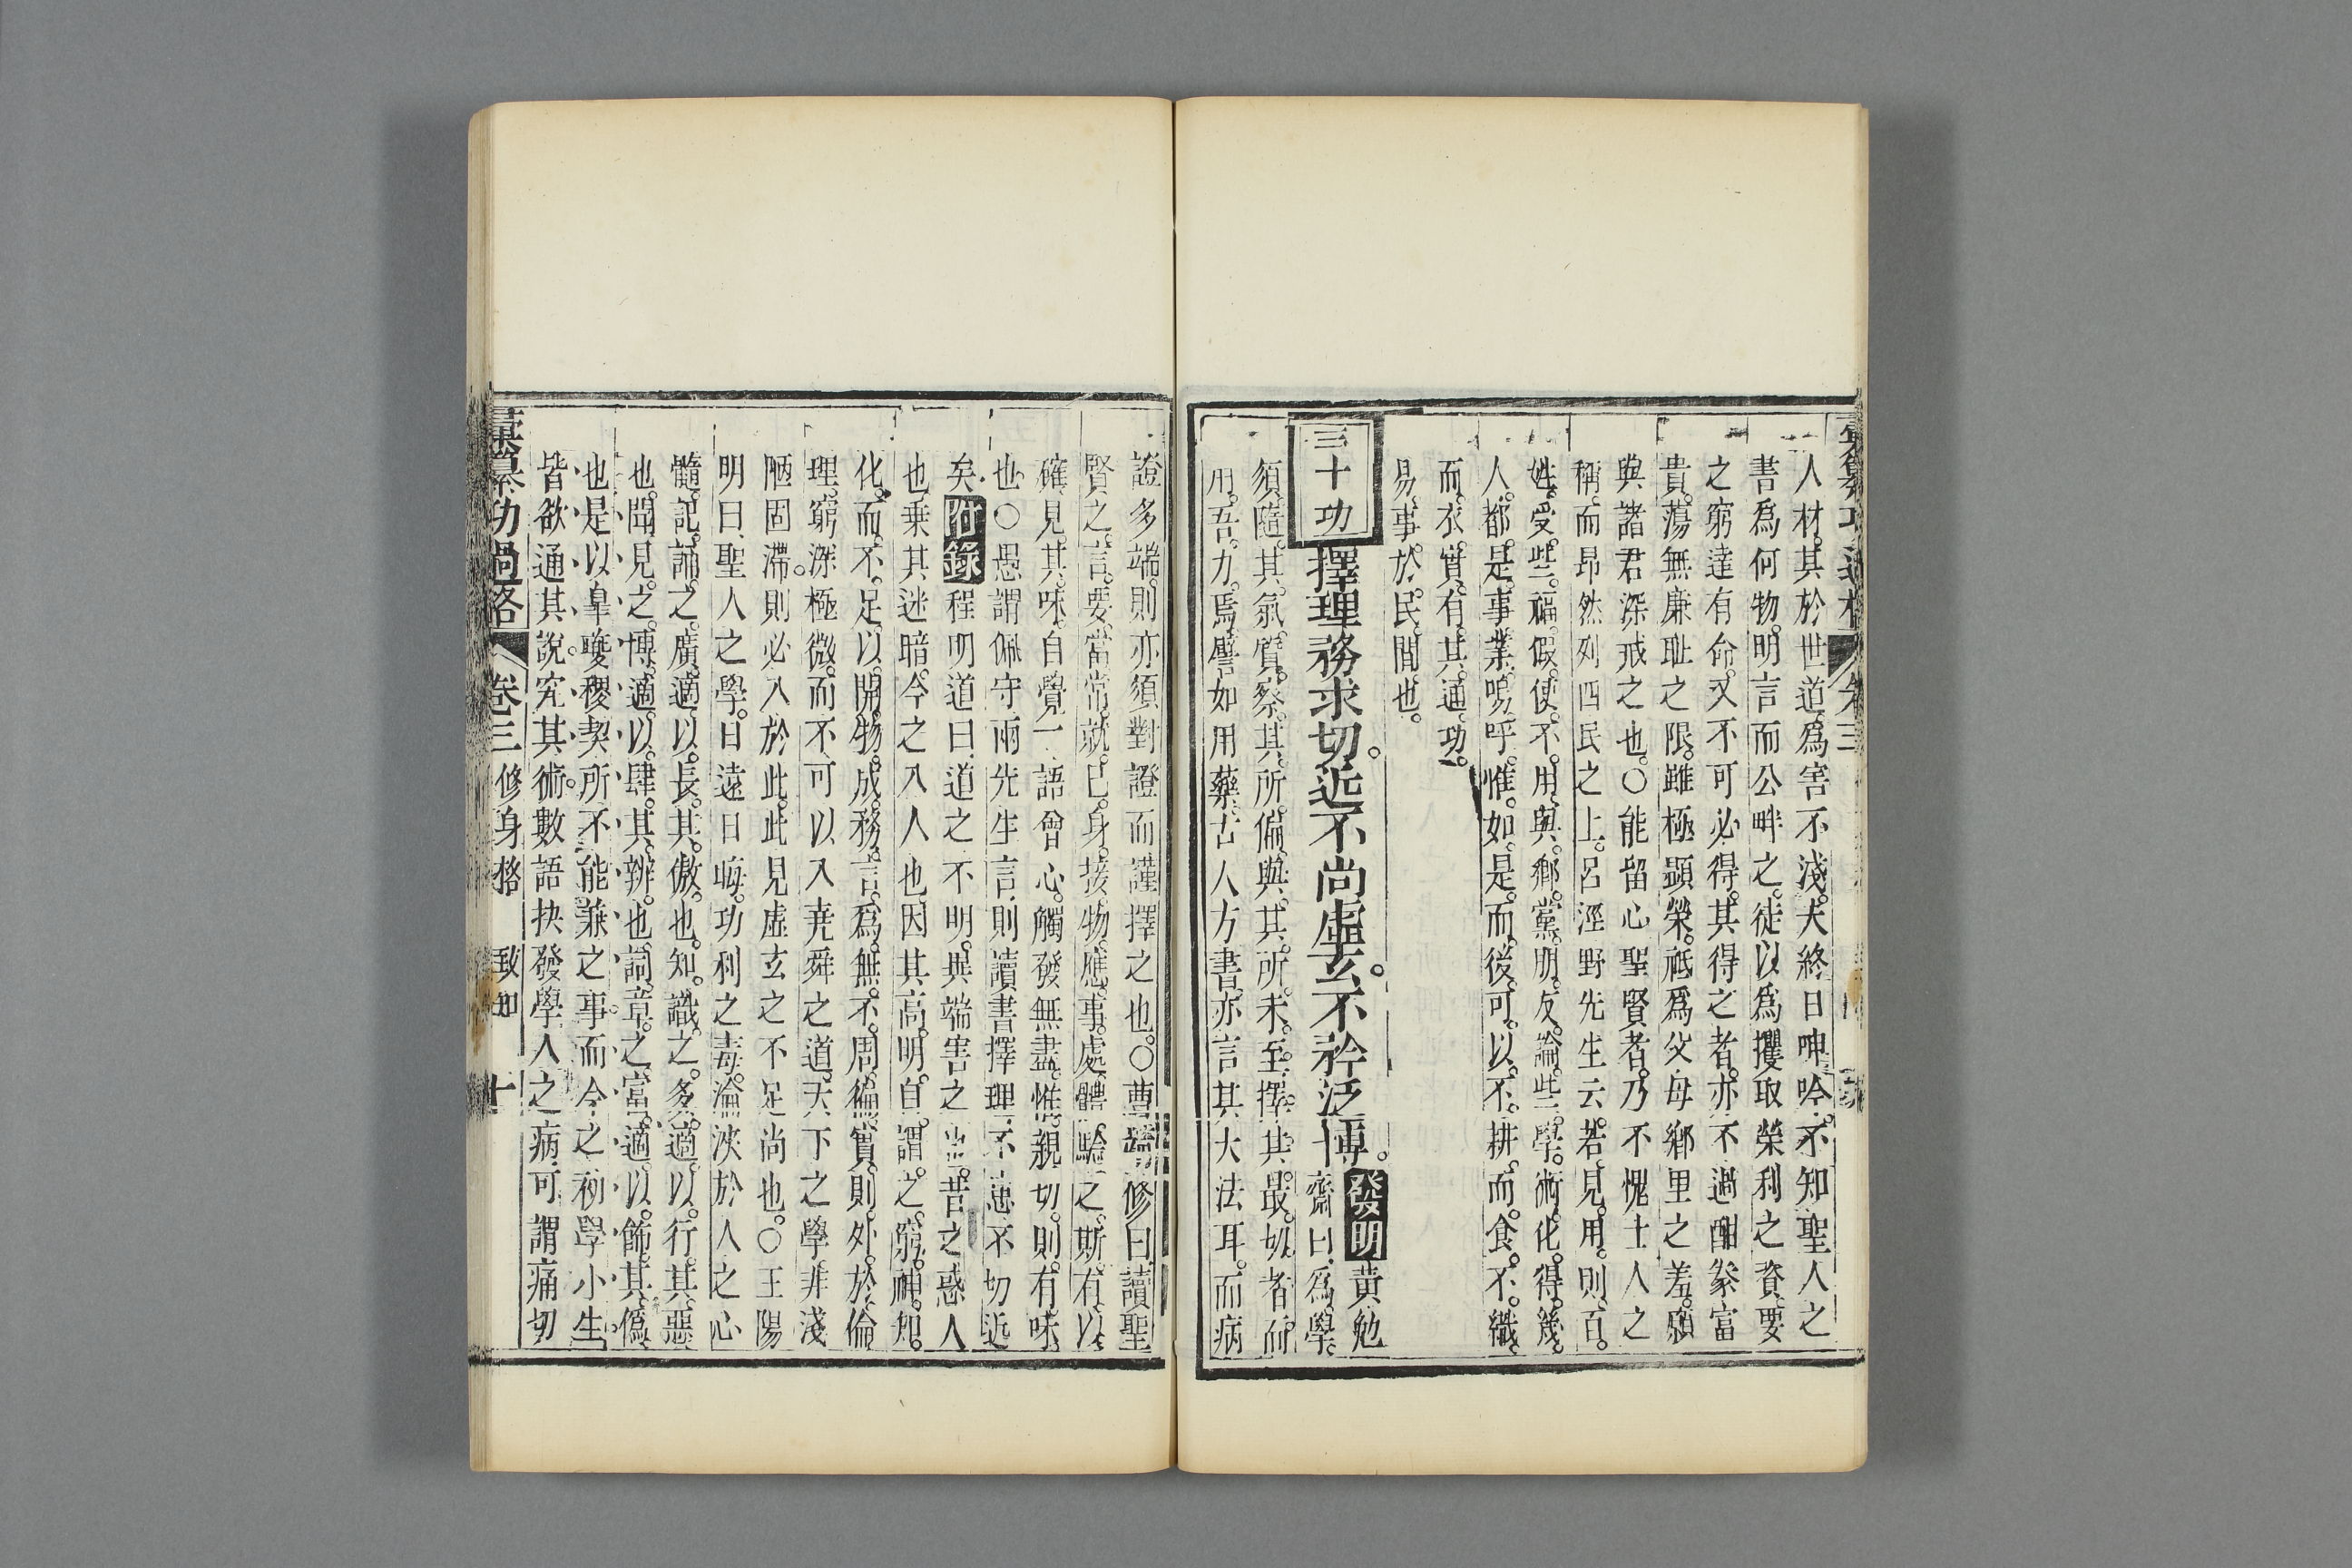 人材其於世道爲害不淺夫終日呻吟不知聖人之
書爲何物明言而公畔之徒以爲攫取榮利之資要
之窮達有命又不可必得其得之者亦不過酣豢富
貴蕩無廉耻之限雖極顯榮祗爲父母鄉里之羞願
與諸君深戒之也○能留心聖賢者乃不愧士人之
稱而昂然列四民之上呂涇野先生云若見用則百
姓受些福假使不用與鄉黨朋友論些學術化得幾
人都是事業嗚呼惟如是而後可以不耕而食不織
而衣實有其通功
易事於民間也
三十功 擇理務求切近不尚虛玄不矜泛博 發明 黃勉
齋曰爲學
須隨其氣質察其所偏與其所未至擇其最切者而
用吾力焉譬如用藥古人方書亦言其大法耳而病
證多端則亦須對證而謹擇之也○曹 修曰讀聖
賢之言要當常就已身接物應事處體驗之斯有以
確見其味自覺一語會心觸發無盡惟親切則有味
也○愚謂佩守兩先生言則讀書擇理不患不切近
矣 附錄 程明道曰道之不明異端害之也昔之惑人
也乗其迷暗今之入人也因其高明自謂之窮神知
化而不足以開物成務言爲無不周徧實則外於倫
理窮深極微而不可以入堯舜之道天下之學非淺
陋固滯則必入於此此見虛玄之不足尚也○王陽
明曰聖人之學日遠日晦功利之毒淪浹於人之心
髓記誦之廣適以長其傲也知識之多適以行其惡
也聞見之博適以肆其辨也詞章之富適以飾其僞
也是以皐夔稷契所不能兼之事而今之初學小生
皆欲通其說究其術數語抉發學人之病可謂痛切
彙纂功過格 卷三 修身格 致知 十